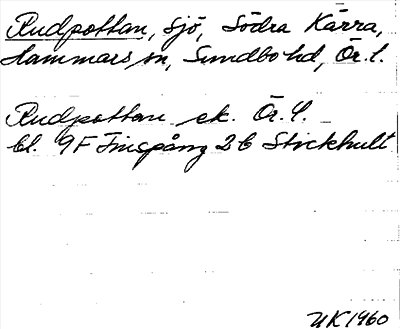 Rudpottan, sjö, Södra Kärra,
Hammars sn, Sundbo hd, Ör. l.
Rudpottan ek. Ör. l.
bl. 9F Finspång 2b Stickhult
UK 1960